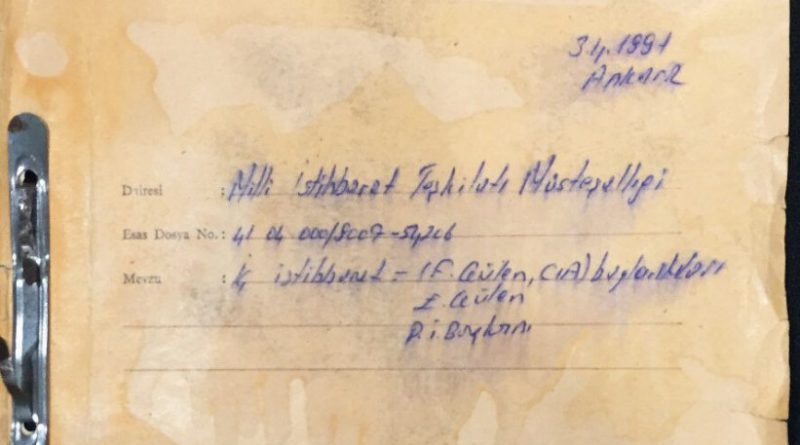 3.4.1991
Ankara
Dairesi : Milli istihbarat Teşkilatı Müsteşarlığı
Esas Dosya No. : 41 04 000/8007-54206
Mevzu : İç istihbarat - (F. Gülen, CIA) bağlantıları
F. Gülen
D. i. Başkanı